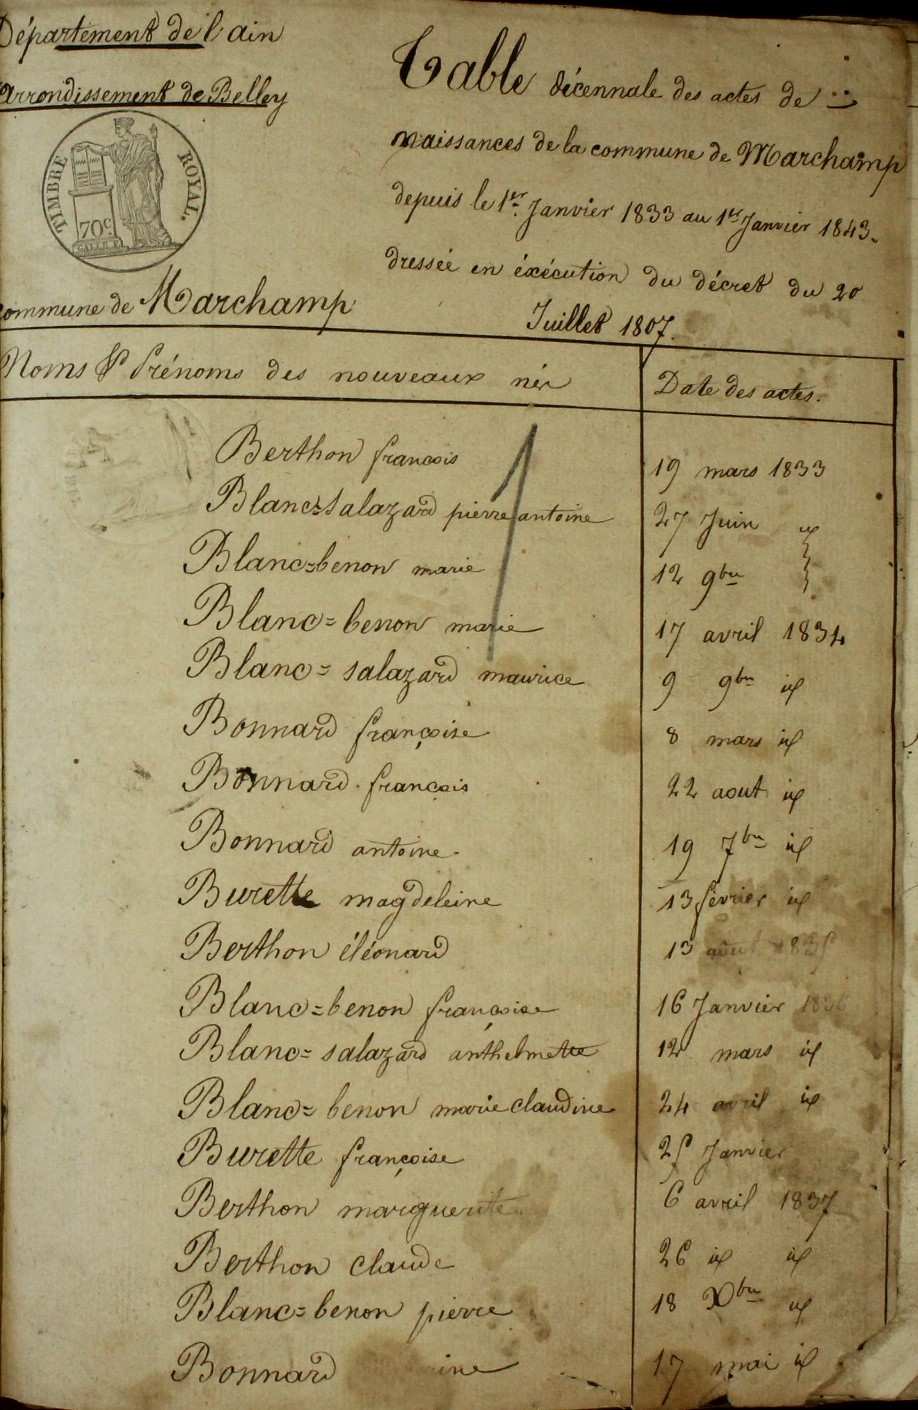 Département de l'ain
arrondissement de Belley
TIMBRE ROYAL.
70c
commune de Marchamp
Table décennale des actes de
naissances de la commune de Marchamp
depuis le 1er Janvier 1833 au 1er Janvier 1843.
dressée en éxécution du décret du 20
Juillet 1807.
Noms & Prénoms des nouveaux nés Date des actes.
Berthon françois 19 mars 1833
Blanc=salazard pierre antoine 27 Juin id
Blanc=benon marie 12 9bre
Blanc=benon marie 17 avril 1834
Blanc=salazard maurice 9 9bre id
Bonnard françoise 8 mars id
Bonnard françois 22 aout id
Bonnard antoine 19 7bre id
Burette magdeleine 13 février id
Berthon éléonard 13 août 1835
Blanc=benon françoise 16 Janvier 1836
Blanc=salazard anthelmette 12 mars id
Blanc=benon marie claudine 24 avril id
Burette françoise 25 Janvier
Berthon marguerite 6 avril 1837
Berthon claude 26 id id
Blanc=benon pierre 18 Xbre id
Bonnard 17 mai id